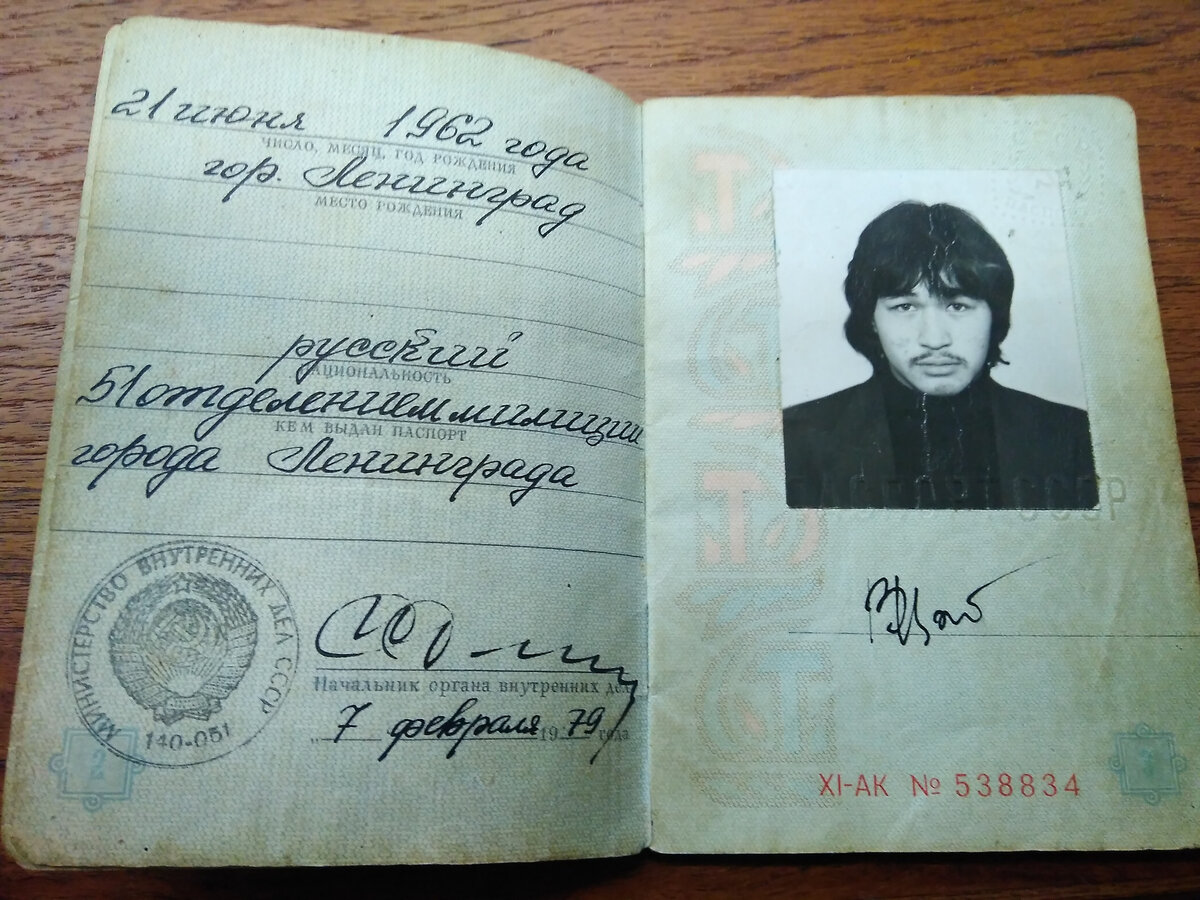 21 июня 1962 года
ЧИСЛО, МЕСЯЦ, ГОД РОЖДЕНИЯ
гор. Ленинград
МЕСТО РОЖДЕНИЯ
русский
НАЦИОНАЛЬНОСТЬ
51 отделением милиции
КЕМ ВЫДАН ПАСПОРТ
города Ленинграда
МИНИСТЕРСТВО ВНУТРЕННИХ ДЕЛ СССР
140-051
Начальник органа внутренних дел
„ 7 февраля 1979 года
2
ПАСПОРТ СССР
XI-АК № 538834